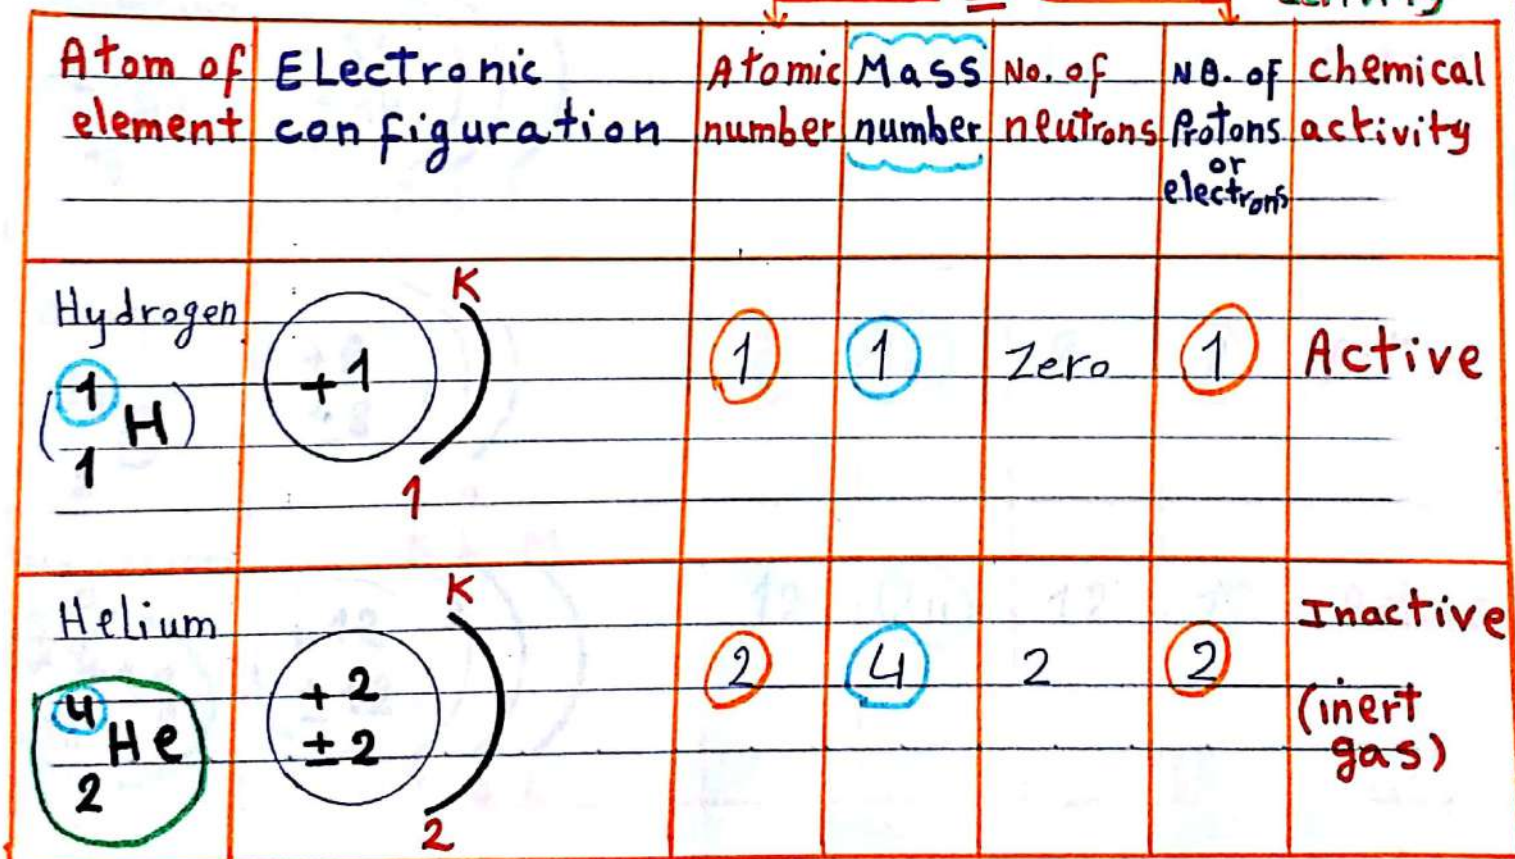 =
Atom of
element
Electronic
configuration
Atomic
number
Mass
number
No. of
neutrons
NO. of
Protons
or
electrons
chemical
activity
Hydrogen
(1
1 H)
+1
K
1
1
1
Zero
1
Active
Helium
4
2 He
+2
±2
K
2
2
4
2
2
Inactive
(inert
gas)